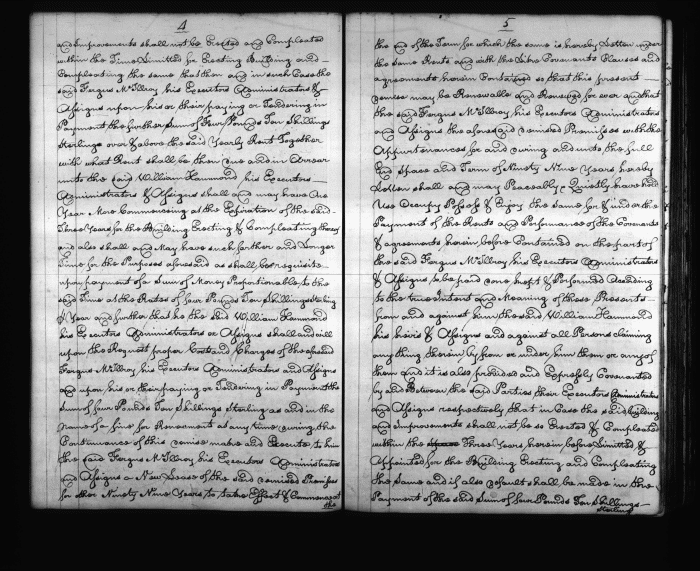 4
and Improvements shall not be Erected and Compleated
within the Time Limited for Erecting Building and
Compleating the same that then and in such Case the
said Fergus McIllroy his Executors Administrators &
Assigns upon his or their paying or Tendering in
Payment the further Sum of Four Pounds Ten Shillings
Sterling over & above the said Yearly Rent Together
with what Rent shall be then due and in Arrear
unto the said William Hammond his Executors
Administrators & Assigns shall and may have One
Year More Commencing at the Expiration of the said
Three Years for the Building Erecting & Compleating thereof
and also shall and May have such further and Longer
Time for the Purposes aforesaid as shall be requisite
upon payment of a Sum of Money Proportionable to the
said Time at the Rates of four Pounds Ten Shillings Sterling
a Year and further that he the said William Hammond
his Executors Administrators or Assigns shall and will
upon the Request proper Costs and Charges of the aforesaid
Fergus McIllroy his Executors Administrators and Assigns
and upon his or their paying or Tendering in Payment the
Sum of four Pounds Ten Shillings Sterling as and in the
Name of a fine for Renewment at any time during the
Continuance of this Demise make and Execute to him
the said Fergus McIllroy his Executors Administrators
and Assigns a New Lease of the said Demised Premises
for other Ninety Nine Years to take Effect & Commence at
the
5
the End of the Term for which the same is hereby Letten under
the same Rents and with the Like Covenants Clauses and
agreements herein Contained so that this present
Demise may be Renewable and Renewed for ever and that
the said Fergus McIllroy his Executors Administrators
and Assigns the aforesaid Demised Premisses with the
Appurtenances for and during and unto the full
End Space and Term of Ninety Nine Years hereby
Letten shall and may Peaceably & Quietly have hold
Use Occupy Possess & Enjoy the same for & under the
Payment of the Rents and Performance of the Covenants
& agreements herein before Contained on the part of
the said Fergus McIllroy his Executors Administrators
& Assigns to be paid done kept & Performed According
to the true intent and Meaning of these Presents
from and against him the said William Hammond
his heirs & Assigns and against all Persons claiming
any thing therein by from or under him them or any of
them and it is also provided and Expressly Covenanted
by and Between the said Parties their Executors Administrators
and Assigns respectively that in Case the said building
and Improvements shall not be so Erected & Compleated
within the Three Years herein before Limited &
Appointed for the Building Erecting and Compleating
the Same and if also default shall be made in the
Payment of the said Sum of four Pounds Ten Shillings
Sterling